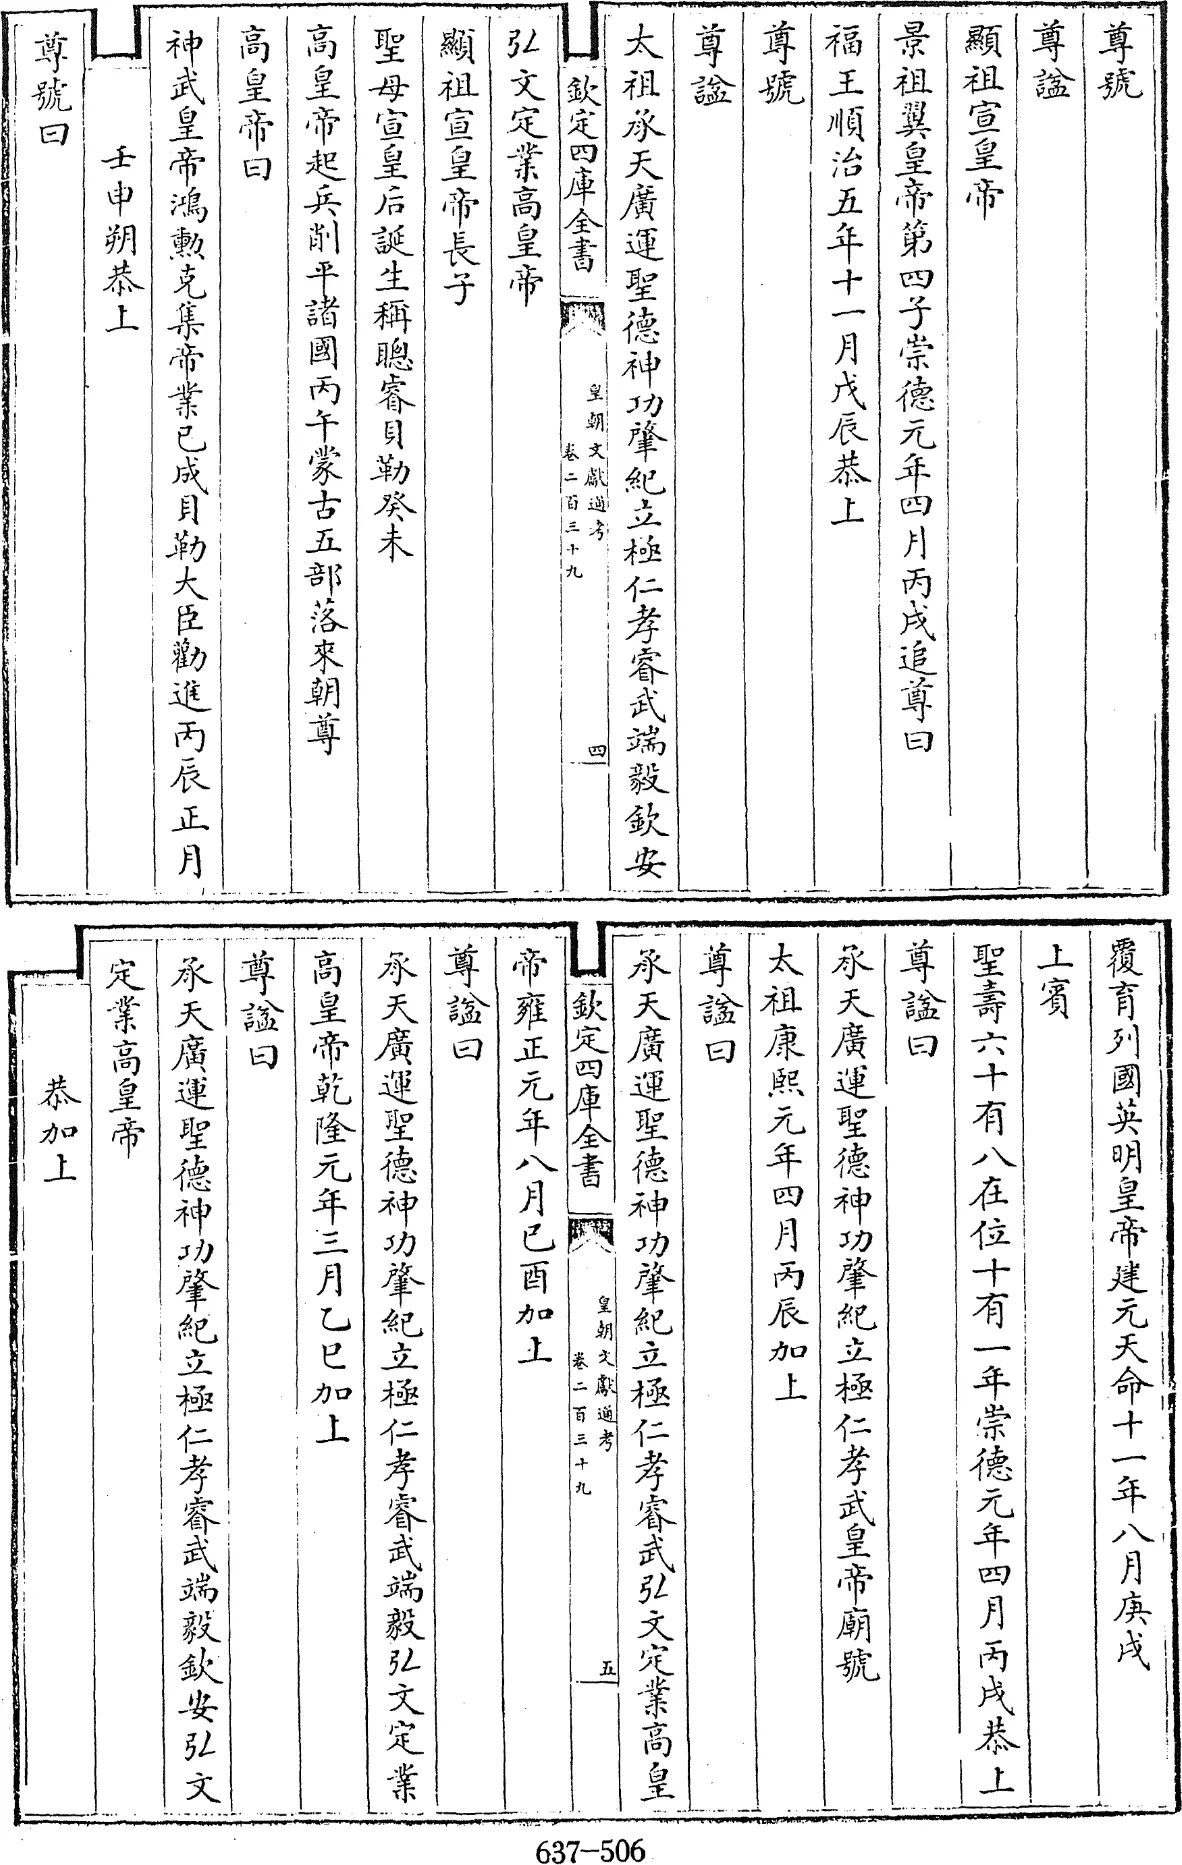 尊號
尊諡
顯祖宣皇帝
景祖翼皇帝第四子崇德元年四月丙戌追尊曰
福王順治五年十一月戊辰恭上
尊號
尊諡
太祖承天廣運聖德神功肇紀立極仁孝睿武端毅欽安
欽定四庫全書
皇朝文獻通考
卷二百三十九
四
弘文定業高皇帝
顯祖宣皇帝長子
聖母宣皇后誕生稱聰睿貝勒癸未
高皇帝起兵削平諸國丙午蒙古五部落來朝尊
高皇帝曰
神武皇帝鴻勲克集帝業已成貝勒大臣勸進丙辰正月
壬申朔恭上
尊號曰
覆育列國英明皇帝建元天命十一年八月庚戌
上賓
聖壽六十有八在位十有一年崇德元年四月丙戌恭上
尊諡曰
承天廣運聖德神功肇紀立極仁孝武皇帝廟號
太祖康熙元年四月丙辰加上
尊諡曰
承天廣運聖德神功肇紀立極仁孝睿武弘文定業高皇
欽定四庫全書
皇朝文獻通考
卷二百三十九
五
帝雍正元年八月己酉加上
尊諡曰
承天廣運聖德神功肇紀立極仁孝睿武端毅弘文定業
高皇帝乾隆元年三月乙巳加上
尊諡曰
承天廣運聖德神功肇紀立極仁孝睿武端毅欽安弘文
定業高皇帝
恭加上
637-506